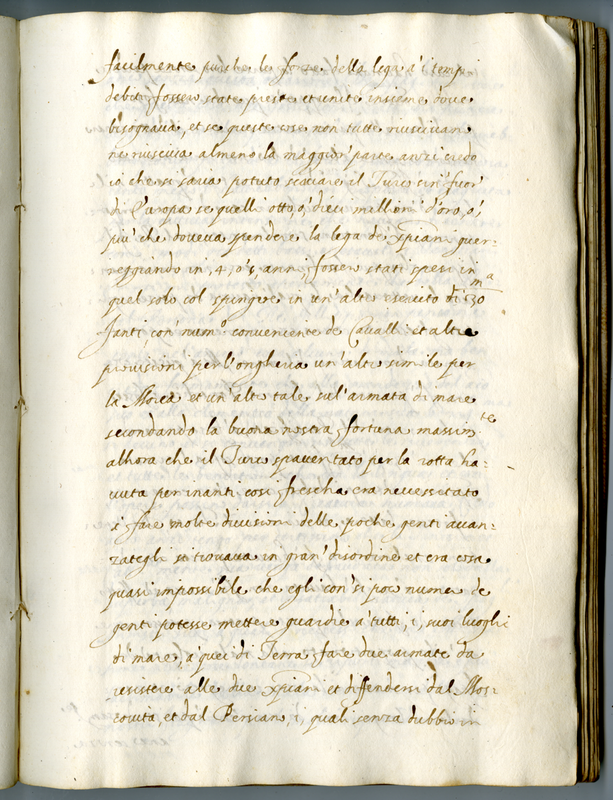 facilmente purche le forze della lega a' i tempi
debiti fosser state preste et unite insieme dove
bisognava, et se queste cose non tutte riuscivan
ne riusciva almeno la maggior' parte anzi credo
io che si saria potuto scaciare il Turco sin' fuor'
di Europa se quelli otto, o' dieci millioni d'oro, o'
piu' che doveva spendere la lega de xpiani guer=
reggiando in, 4, o' 5, anni, fosser stati spesi in
quel solo col spingere in un' altro esercito di 130 m.a
fanti, con' num.o conveniente de Cavalli et altre
provisioni per l'ongheria un' altro simile per
la Morea et un' altro tale sul' armata di mare
secondando la buona nostra fortuna massim.te
alhora che il Turco spaventato per la rotta ha=
vuta per inanti cosi frescha era necessitato
a' fare molte divisioni delle poche genti avan=
zategli si trovava in gran' disordine et era cosa
quasi impossibile che egli con' si poco numero de
genti potesse mettere guardie a' tutti, i, suoi luoghi
di mare, a' quei di Terra fare due armate da
resistere alle due xpiani et diffendersi dal Mos=
covita, et dal Persiano, i, quali senza dubbio in